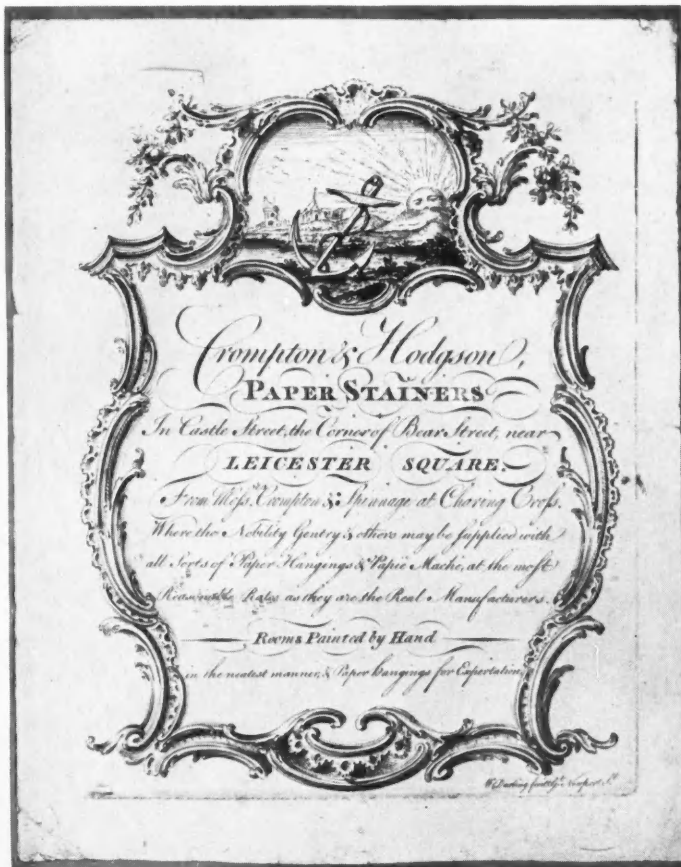 Crompton & Hodgson,
PAPER STAINERS
In Castle Street, the Corner of Bear Street, near
LEICESTER SQUARE:
From Mess.rs Crompton & Spinnage at Charing Cross.
Where the Nobility Gentry & others may be supplied with
all Sorts of Paper Hangings & Papie Mache, at the most
Reasonable Rates as they are the Real Manufacturers.
Rooms Painted by Hand
in the neatest manner, & Paper hangings for Exportation
W. Darling Newport St.